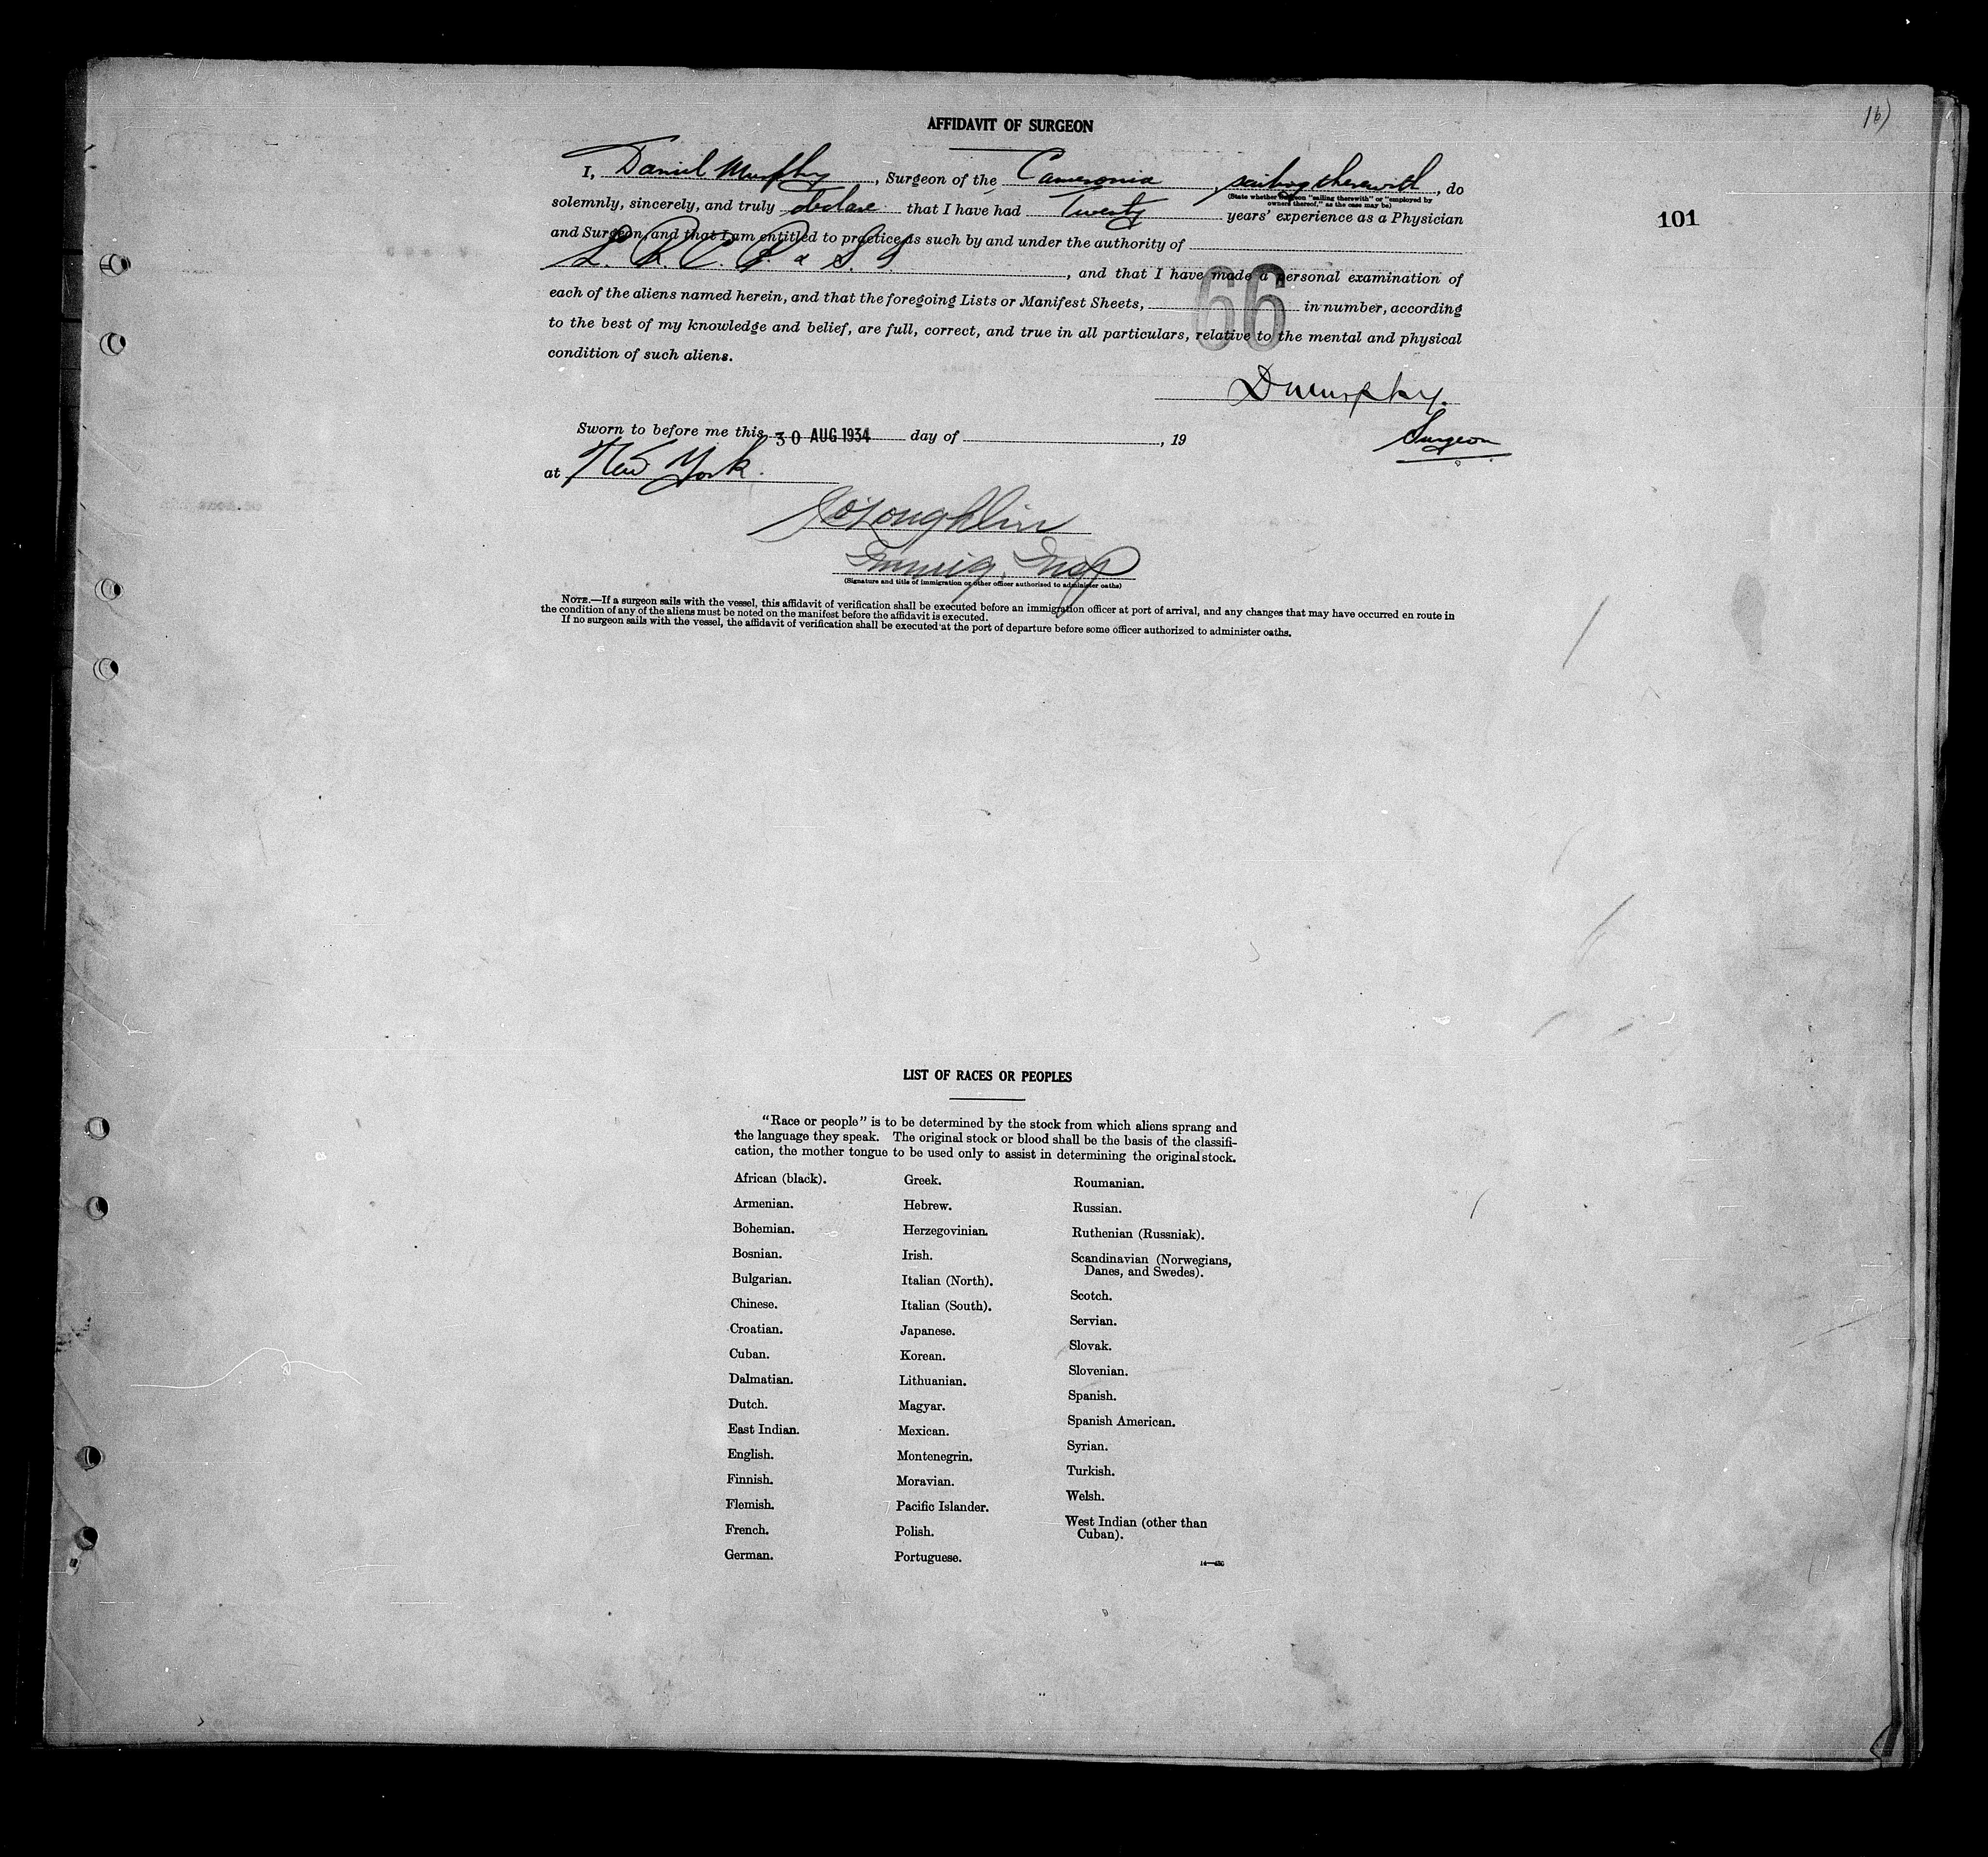 16)
AFFIDAVIT OF SURGEON
101
I, Daniel Murphy, Surgeon of the Cameronia, sailing therewith, do
(State whether Surgeon "sailing therewith" or "employed by
owners thereof," as the case may be)
solemnly, sincerely, and truly declare that I have had Twenty years' experience as a Physician
and Surgeon, and that I am entitled to practice as such by and under the authority of
L. R. C. P. & S. I., and that I have made a personal examination of
each of the aliens named herein, and that the foregoing Lists or Manifest Sheets, 66 in number, according
to the best of my knowledge and belief, are full, correct, and true in all particulars, relative to the mental and physical
condition of such aliens.
D Murphy.
Surgeon
Sworn to before me this 30 AUG 1934 day of , 19
at New York.
O'Loughlin
Immig. Insp
(Signature and title of immigration or other officer authorized to administer oaths)
NOTE.—If a surgeon sails with the vessel, this affidavit of verification shall be executed before an immigration officer at port of arrival, and any changes that may have occurred en route in
the condition of any of the aliens must be noted on the manifest before the affidavit is executed.
If no surgeon sails with the vessel, the affidavit of verification shall be executed at the port of departure before some officer authorized to administer oaths.
LIST OF RACES OR PEOPLES
"Race or people" is to be determined by the stock from which aliens sprang and
the language they speak. The original stock or blood shall be the basis of the classifi-
cation, the mother tongue to be used only to assist in determining the original stock.
African (black).
Armenian.
Bohemian.
Bosnian.
Bulgarian.
Chinese.
Croatian.
Cuban.
Dalmatian.
Dutch.
East Indian.
English.
Finnish.
Flemish.
French.
German.
Greek.
Hebrew.
Herzegovinian.
Irish.
Italian (North).
Italian (South).
Japanese.
Korean.
Lithuanian.
Magyar.
Mexican.
Montenegrin.
Moravian.
Pacific Islander.
Polish.
Portuguese.
Roumanian.
Russian.
Ruthenian (Russniak).
Scandinavian (Norwegians,
Danes, and Swedes).
Scotch.
Servian.
Slovak.
Slovenian.
Spanish.
Spanish American.
Syrian.
Turkish.
Welsh.
West Indian (other than
Cuban).